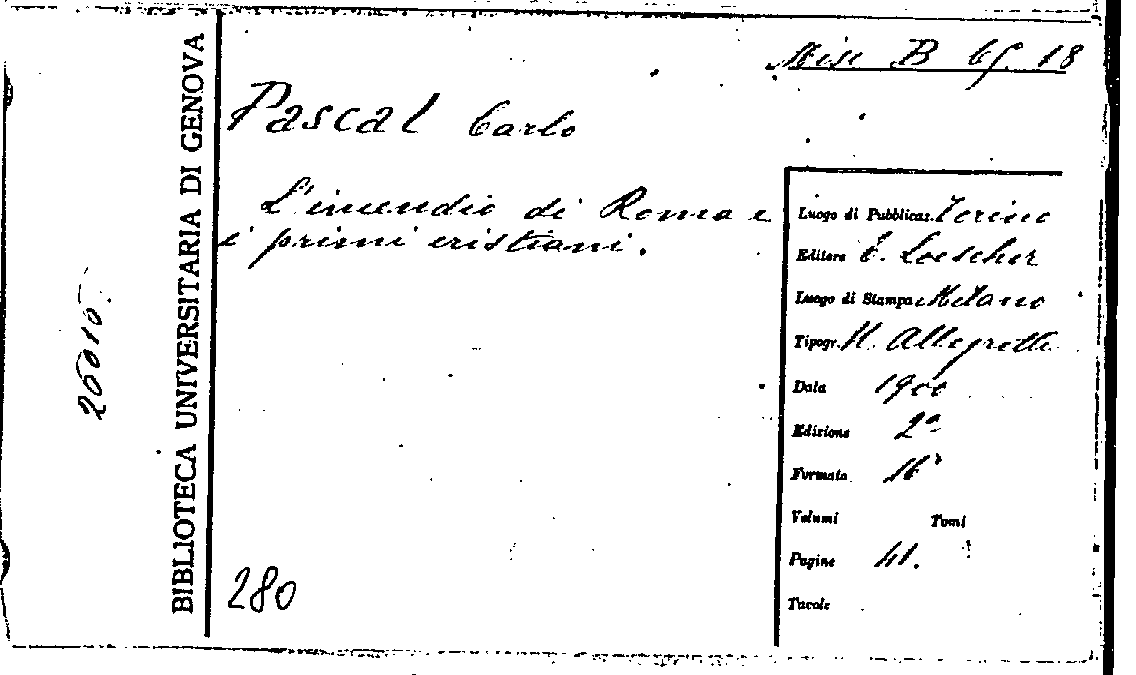 Misc B 65. 18
BIBLIOTECA UNIVERSITARIA DI GENOVA
Pascal Carlo
L'incendio di Roma e
i primi cristiani.
Luogo di Pubblicaz. Torino
Editore E. Loescher
Luogo di Stampa Milano
Tipogr. U. Allegretti
Data 1900
Edizione 2ª
Formato 16°
Volumi Tomi
Pagine 41.
Tavole
280